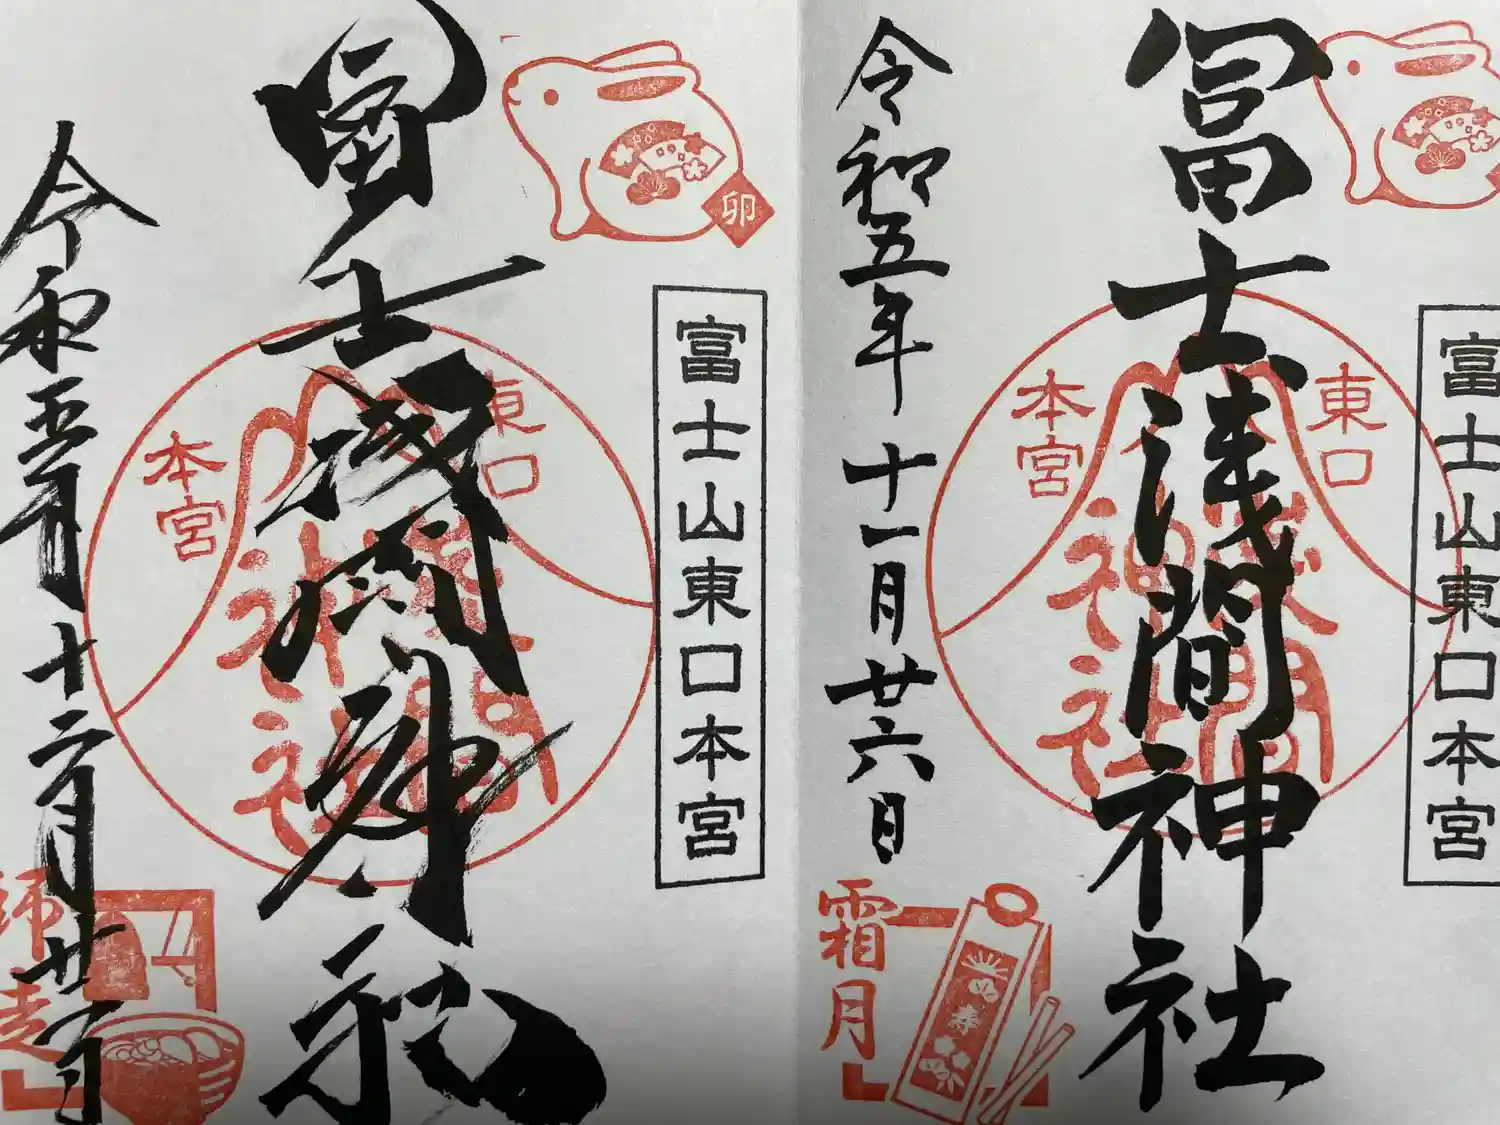 富士山東口本宮
冨士浅間神社
東口
本宮
浅間
神社
令和五年十一月廿六日
霜月
奉
卯
富士山東口本宮
冨士浅間神社
東口
本宮
浅間
神社
令和五年十二月廿
師走